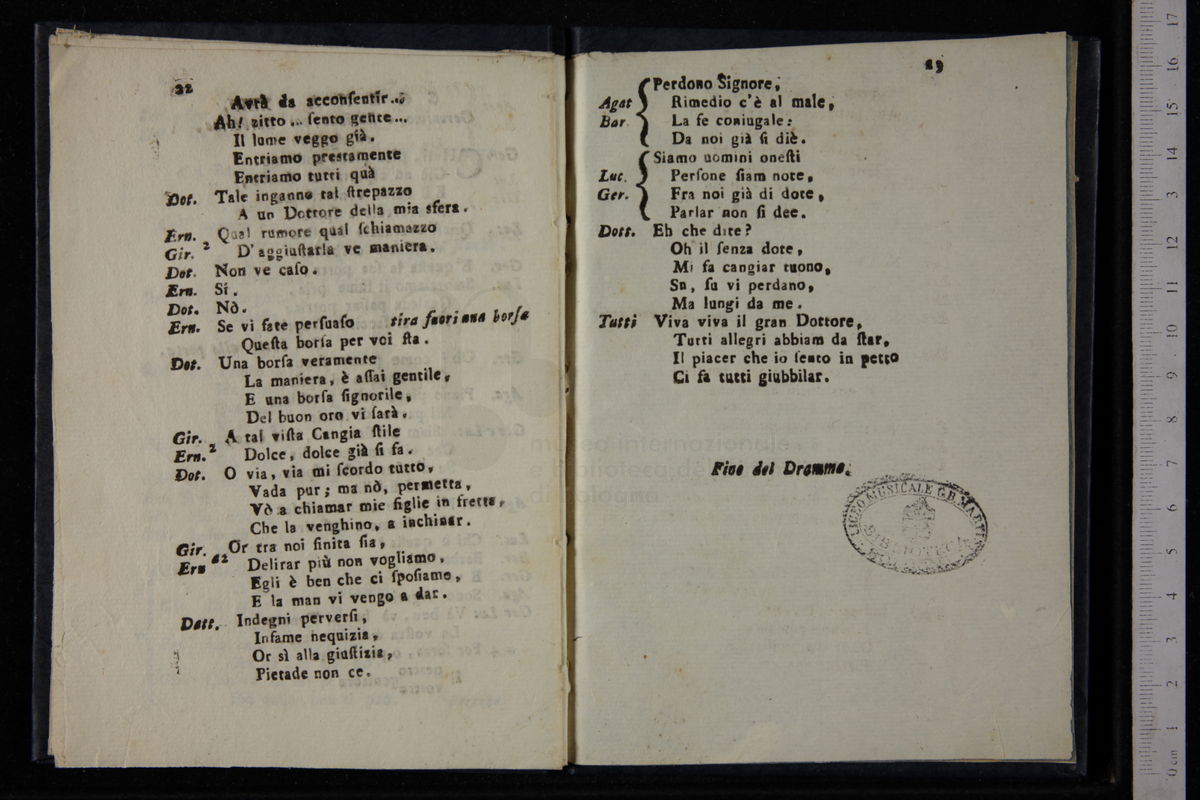 22
Avrà da acconſentir...
Ah! zitto... ſento gente...
Il lume veggo già.
Entriamo prestamente
Entriamo tutti quà
Dot. Tale inganno tal ſtrepazzo
A un Dottore della mia sfera.
Ern. Qual rumore qual ſchiamazzo
Gir. 2 D'aggiuſtarla ve maniera.
Dot. Non ve caſo.
Ern. Sí.
Dot. Nò.
Ern. Se vi fate perſuaſo tira fuori una borſa
Queſta borſa per voi ſta.
Dot. Una borſa veramente
La maniera, è aſſai gentile,
E una borſa ſignorile,
Del buon oro vi ſarà.
Gir. A tal viſta Cangia ſtile
Ern. 2 Dolce, dolce già ſi fa.
Dot. O via, via mi ſcordo tutto,
Vada pur; ma nò, permetta,
Vò a chiamar mie figlie in fretta,
Che la venghino, a inchinar.
Gir. Or tra noi finita ſia,
Ern a2 Delirar più non vogliamo,
Egli è ben che ci ſpoſiamo,
E la man vi vengo a dar.
Dott. Indegni perverſi,
Infame nequizia,
Or sì alla giuſtizia,
Pietade non ce.
23
Perdono Signore,
Agat Rimedio c'è al male,
Bar. La fe coniugale:
Da noi già ſi diè.
Siamo uomini oneſti
Luc. Perſone ſiam note,
Ger. Fra noi già di dote,
Parlar non ſi dee.
Dott. Eh che dite?
Oh il ſenza dote,
Mi fa cangiar tuono,
Su, ſu vi perdano,
Ma lungi da me.
Tutti Viva viva il gran Dottore,
Tutti allegri abbiam da ſtar,
Il piacer che io ſento in petto
Ci fa tutti giubbilar.
Fine del Dramma.
LICEO MUSICALE G.B. MARTINI
BIBLIOTECA
museo internazionale
e biblioteca de
di bologna
0 cm 1 2 3 4 5 6 7 8 9 10 11 12 13 14 15 16 17